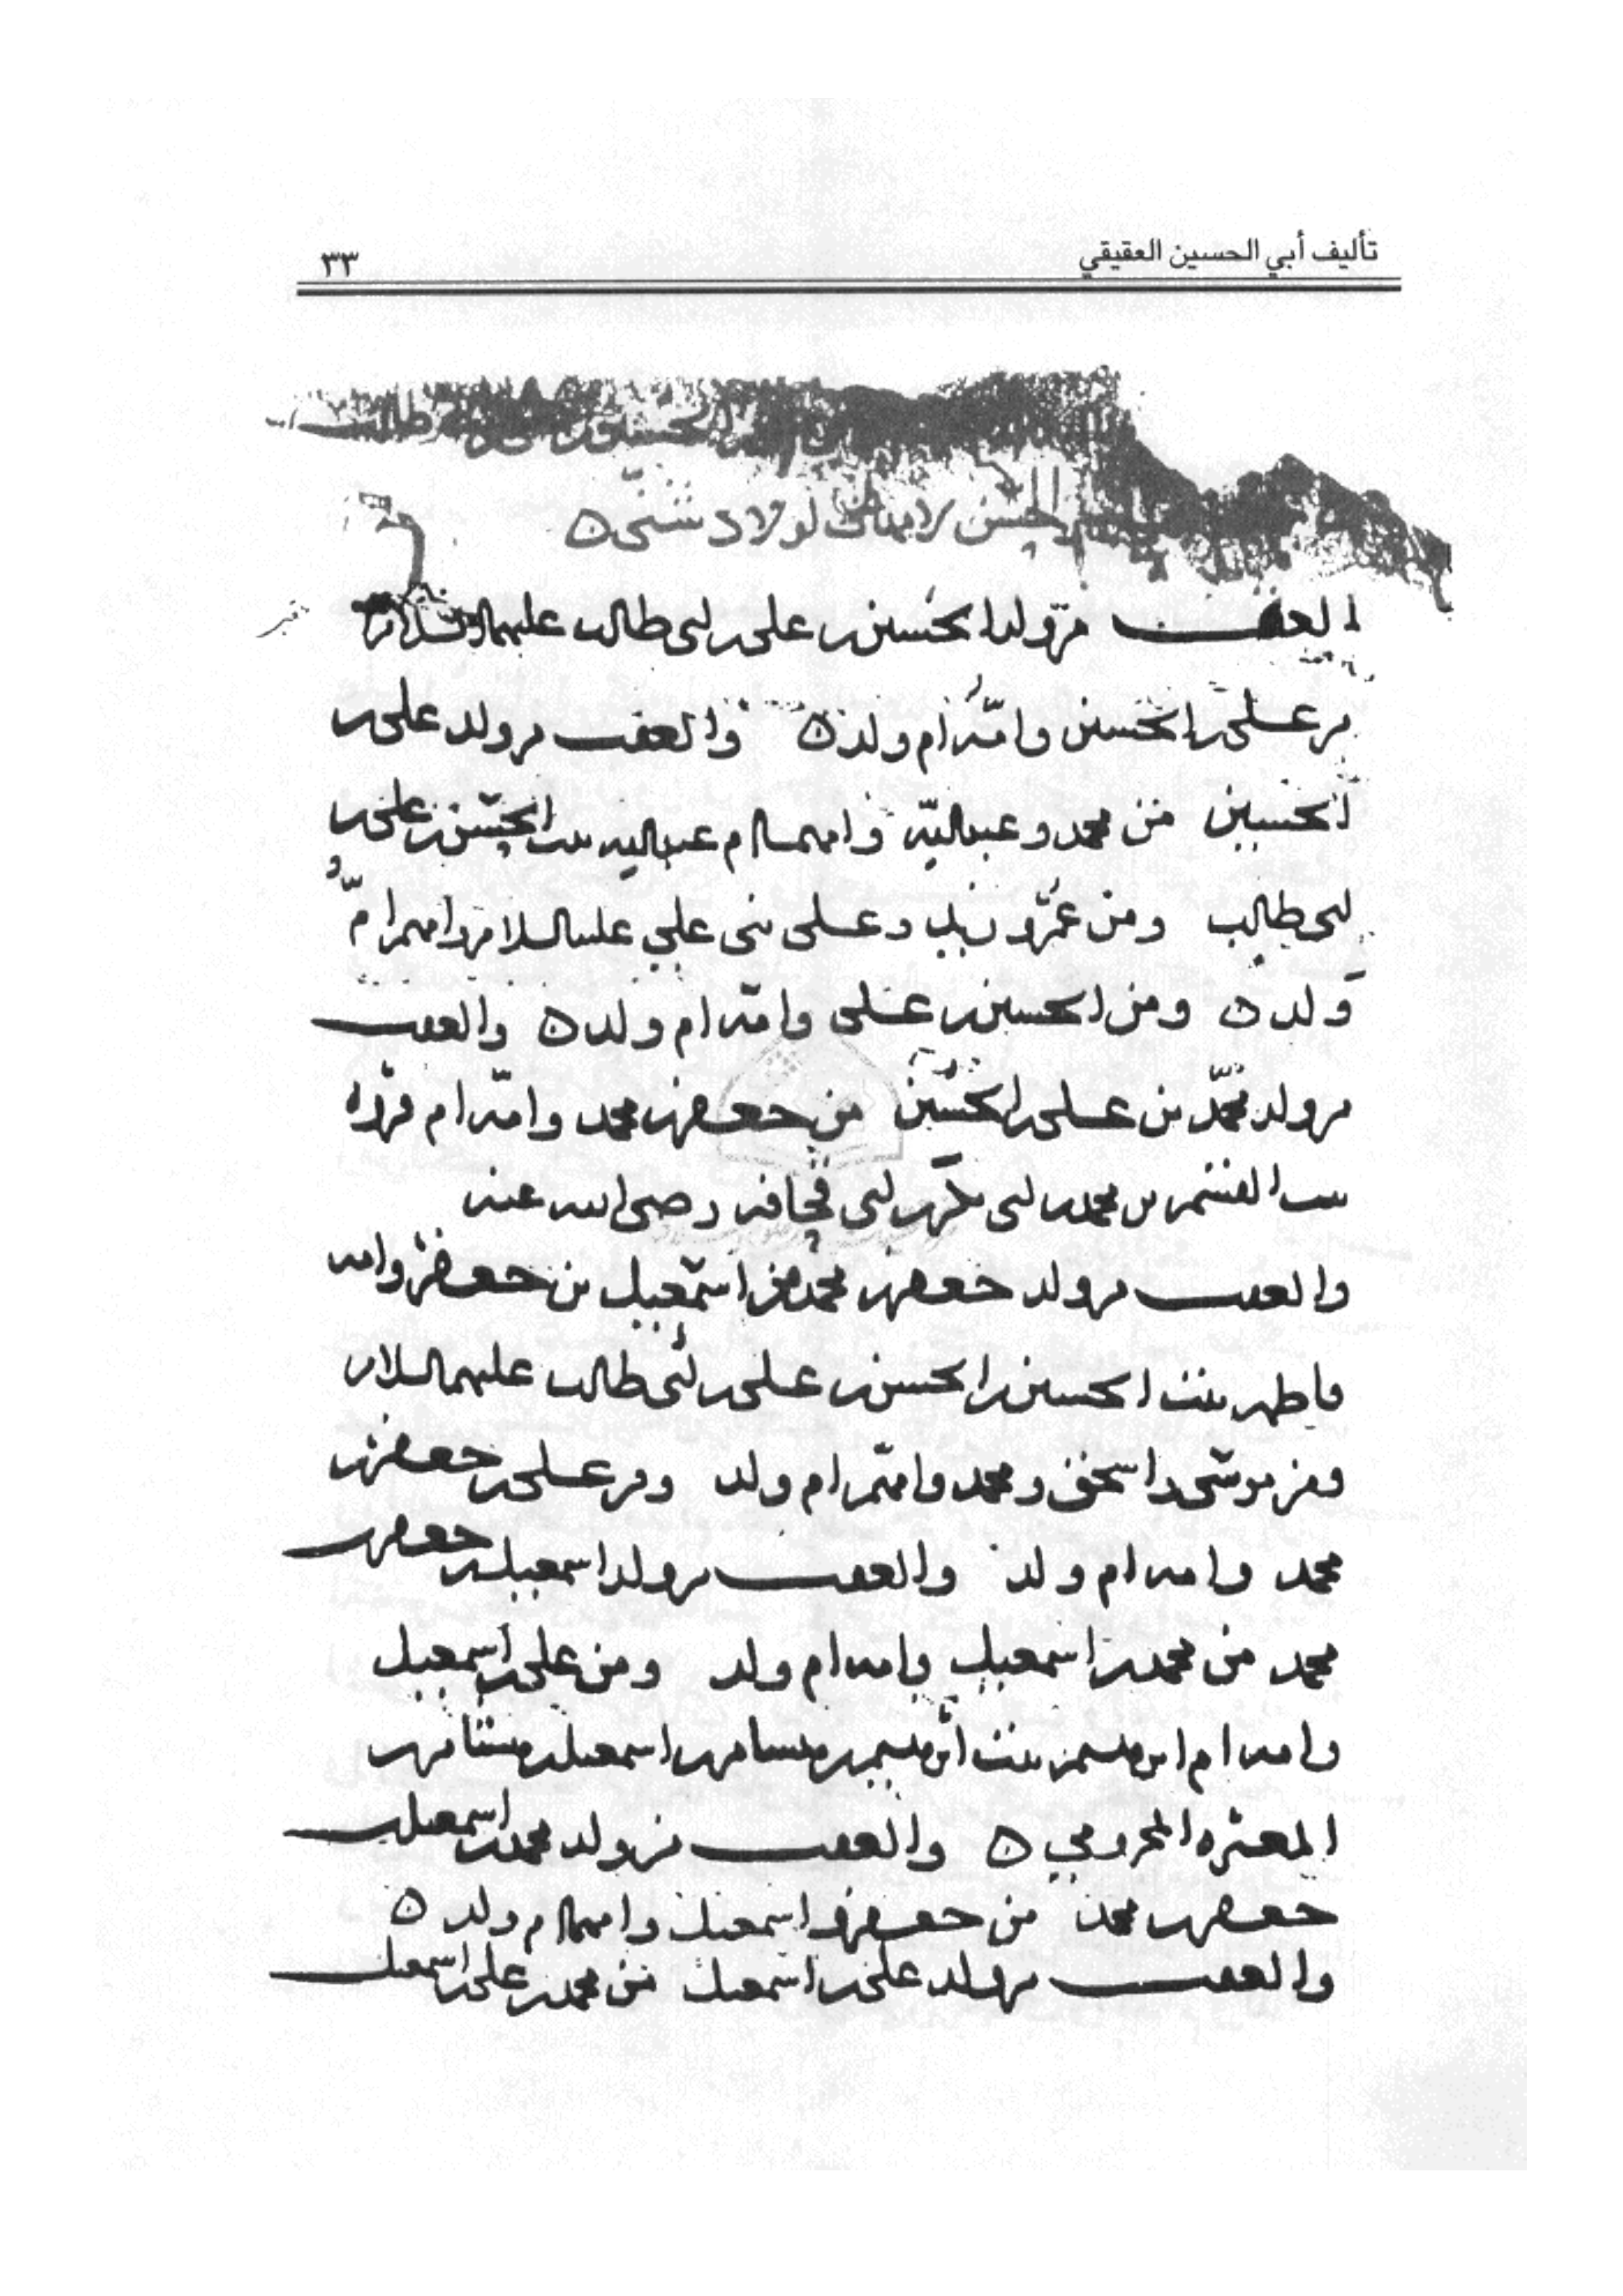 تأليف أبي الحسين العقيقي ٣٣
الحسين بن طالب
الحسن لامهات اولاد شتى ه
العقب من ولد الحسين بن علي بن ابي طالب عليهما السلام
من علي بن الحسين وامه ام ولد ه والعقب من ولد علي بن
الحسين من محمد وعبدالله وامهما ام عبدالله بنت الحسن بن علي بن
ابي طالب ومن عمر وزيد وعلي بني علي عليه السلام وامهم ام
ولد ه ومن الحسين بن علي وامه ام ولد ه والعقب
من ولد محمد بن علي بن الحسين من جعفر بن محمد وامه ام فروه
بنت القسم بن محمد بن ابي بكر بن ابي قحافه رضي الله عنه
والعقب من ولد جعفر بن محمد من اسمعيل بن جعفر وامه
فاطمه بنت الحسين بن الحسن بن علي بن ابي طالب عليهما السلام
ومن موسى واسحق ومحمد وامهم ام ولد ومن علي بن جعفر بن
محمد وامه ام ولد والعقب من ولد اسمعيل بن جعفر بن
محمد من محمد بن اسمعيل وامه ام ولد ومن علي بن اسمعيل
وامه ام ابرهيم بنت ابرهيم بن هشام بن اسمعيل بن هشام بن
المغيره المخزومي ه والعقب من ولد محمد بن اسمعيل بن
جعفر بن محمد من جعفر واسمعيل وامهما ام ولد ه
والعقب من ولد علي بن اسمعيل من محمد بن علي بن اسمعيل